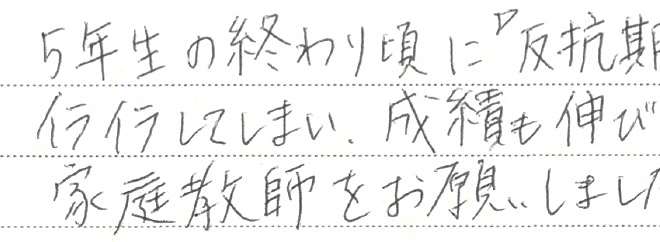 5年生の終わり頃に「反抗期
イライラしてしまい、成績も伸び
家庭教師をお願いしまし